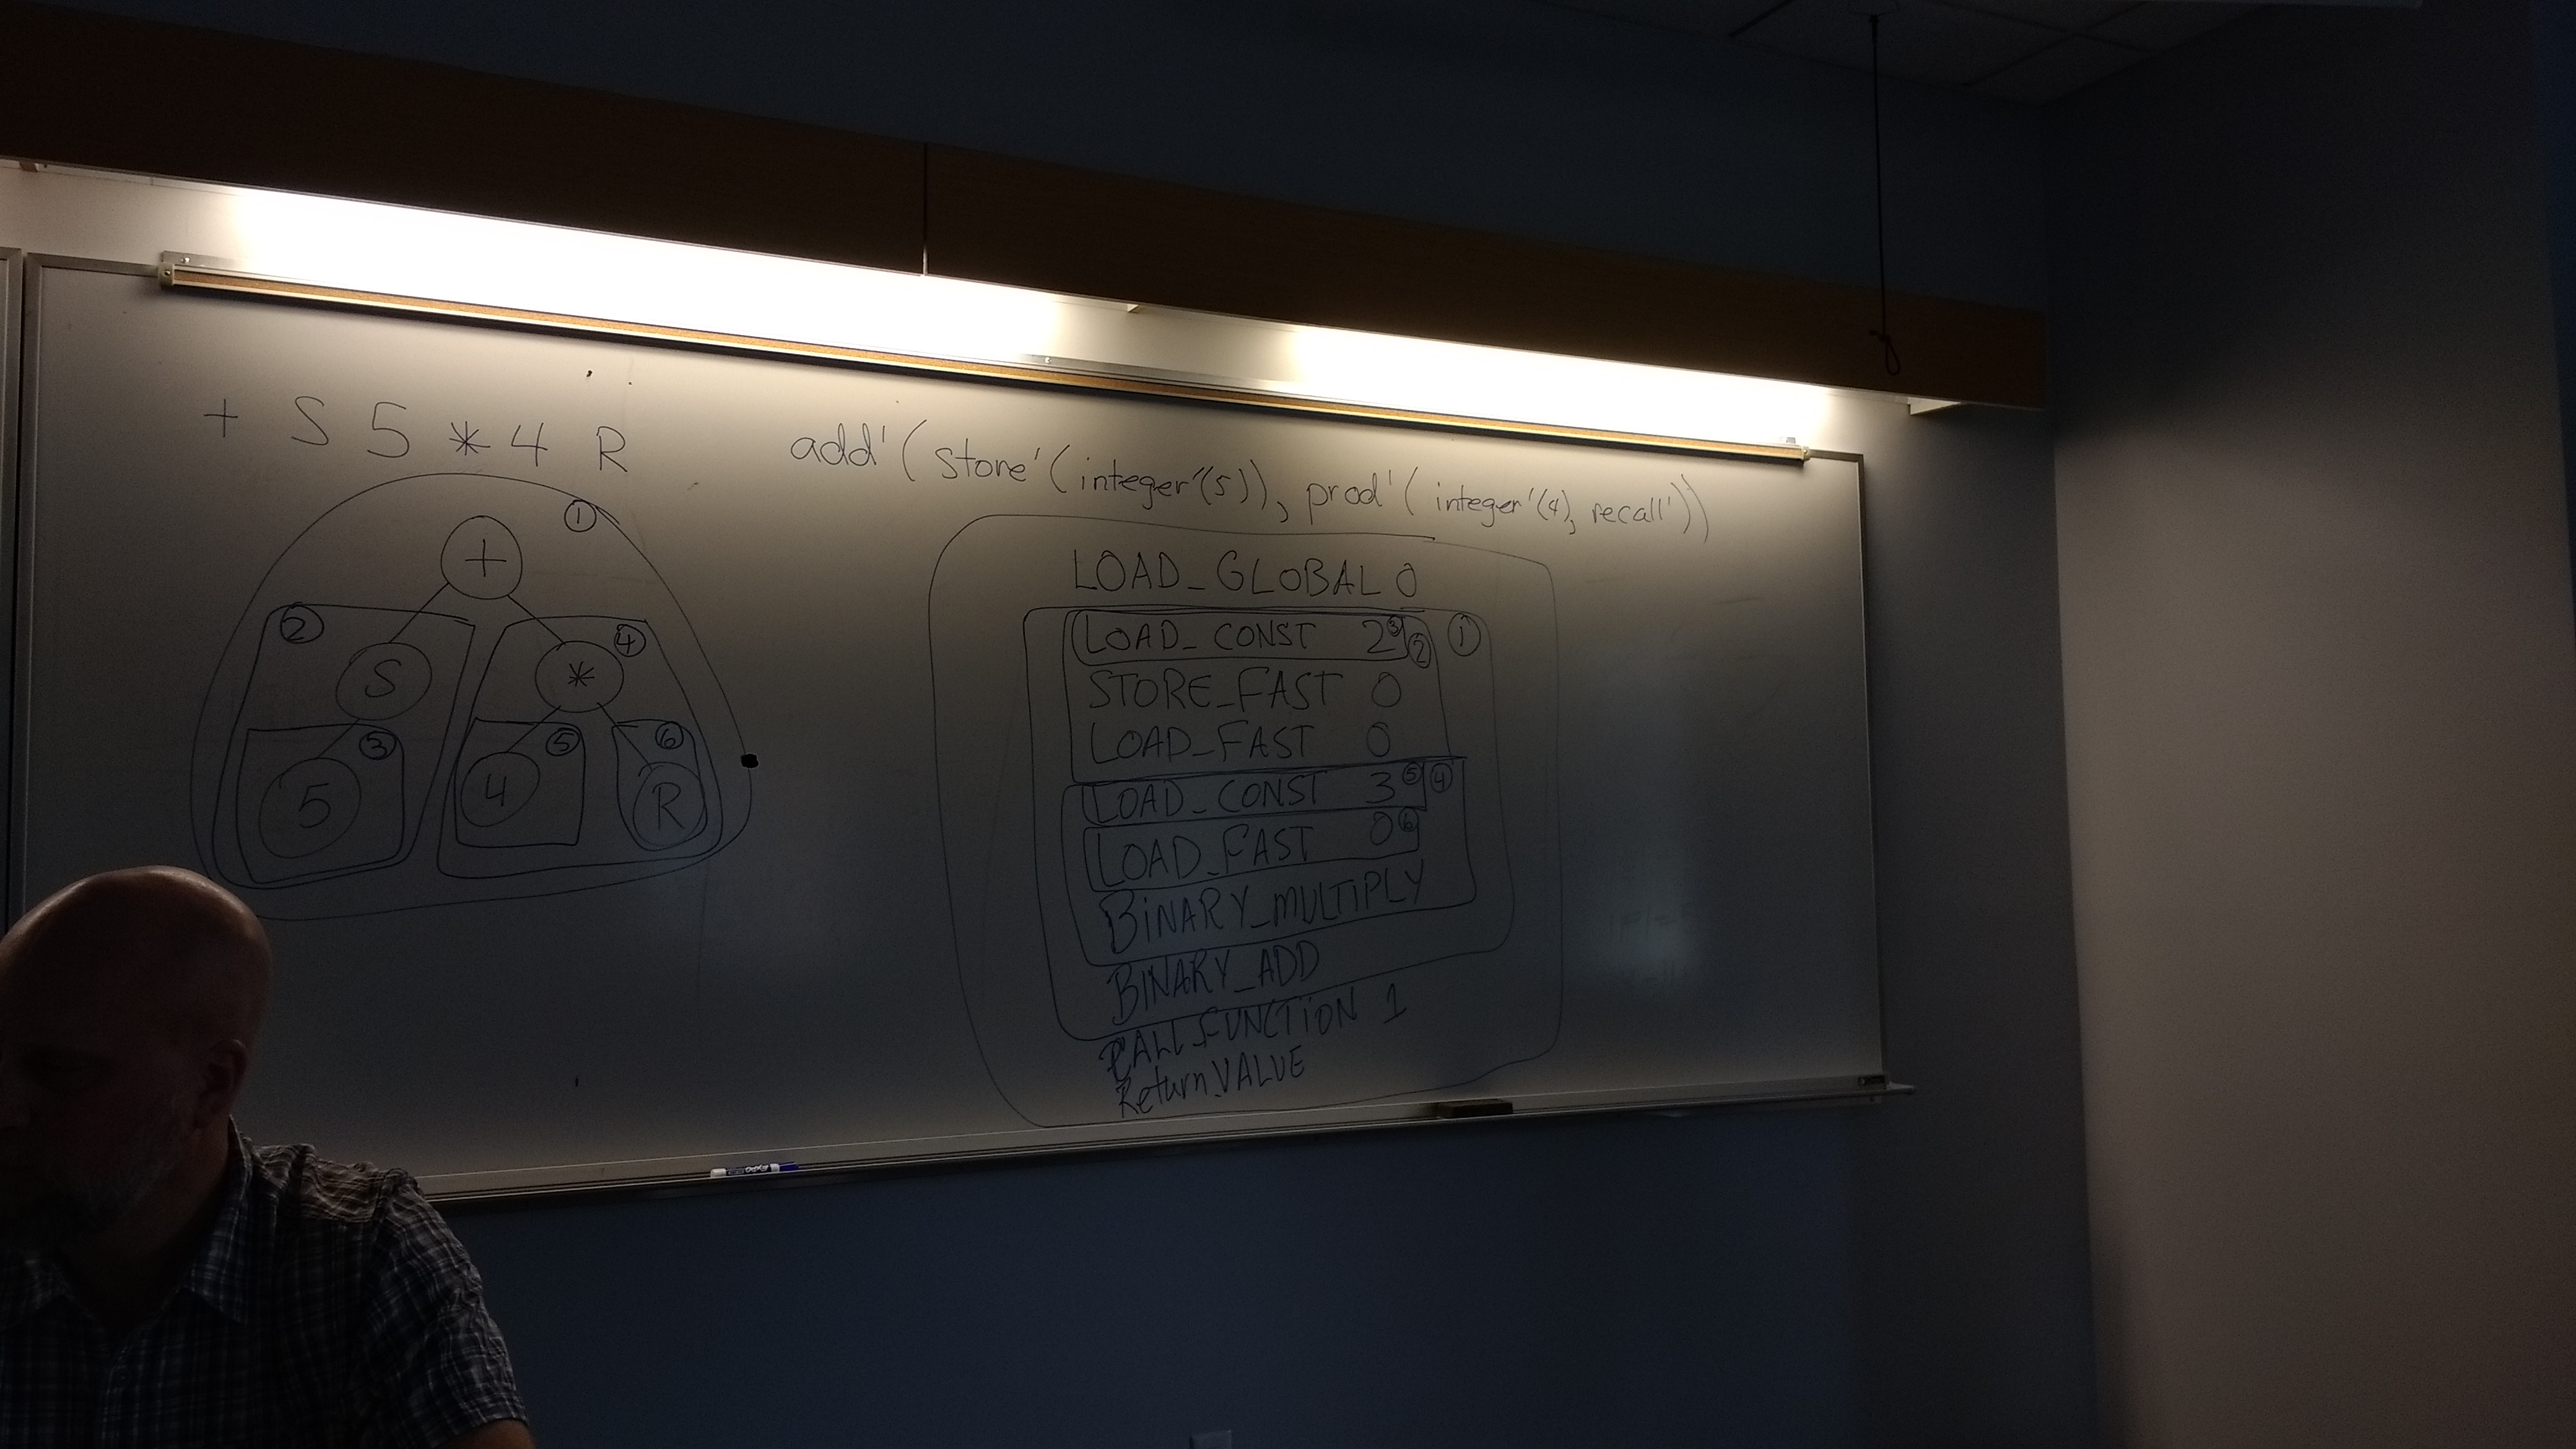 + S 5 * 4 R
add'(store'(integer'(5)), prod'(integer'(4), recall'))
1
+
2
4
S
*
3
5
6
5
4
R
LOAD_GLOBAL 0
LOAD_CONST 2 3 2 1
STORE_FAST 0
LOAD_FAST 0
LOAD_CONST 3 5 4
LOAD_FAST 0 6
BINARY_MULTIPLY
BINARY_ADD
CALL_FUNCTION 1
Return_VALUE
EXPO